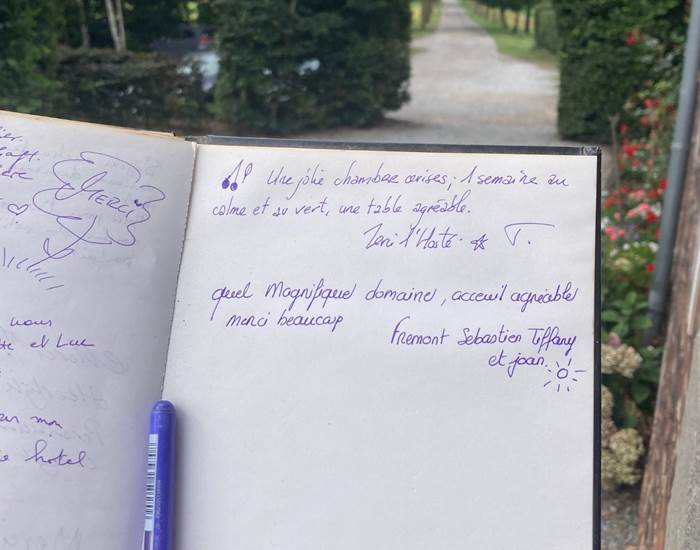 MERCI
nous
et Luc
mon
hotel
Une jolie chambre cerises, 1 semaine au
calme et au vert, une table agréable.
T.
quel Magnifique domaine, acceuil agréable
merci beaucoup
Fremont Sebastien Tiffany
et joan